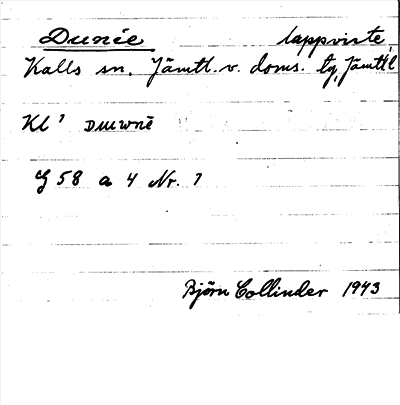 Dunie lappviste,
Kalls sn. Jämtl. v. doms. tg, Jämtl. l
Kl' Duwnē
G 58 a 4 Nr. 7
Björn Collinder 1943